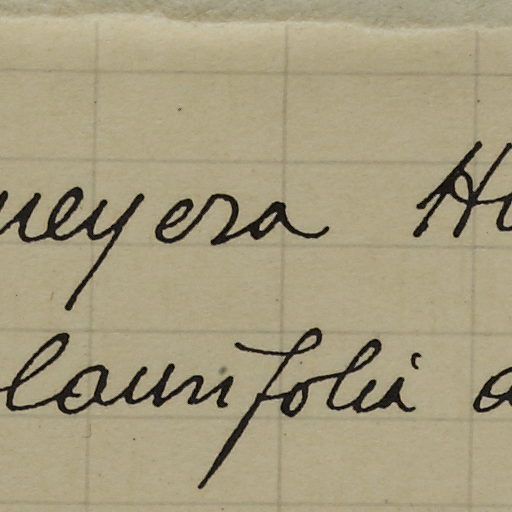 meyera H
laurifolia a